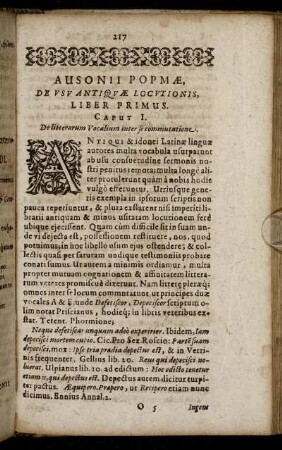 217
AUSONII POPMÆ,
DE VSV ANTIQVÆ LOCVTIONIS,
LIBER PRIMUS.
CAPUT I.
De litterarum Vocalium inter se commutatione.
ANTIQUI & idonei Latinæ linguæ
autores multa vocabula usurparunt
ab usu consuetudine sermonis no-
stri penitus remota: multa longè ali-
ter protulerunt quàm à nobis hodie
vulgò efferuntur. Utriusque gene-
ris exempla in ipsorum scriptis non
pauca reperiuntur, & plura exstarent nisi imperiti li-
brarii antiquam & minus usitatam locutionem ferè
ubique ejecissent. Quam cùm difficile sit in suam un-
de vi dejecta est, possessionem restituere, nos, quod
quod potuimus, in hoc libello usum ejus ostendere, & colle-
ctis quasi per saturam undique testimoniis probare
conati sumus. Ut autem à minimis ordiamur, multa
propter mutuam cognationem & affinitatem littera-
rum veteres promiscuè dixerunt. Nam litteræ pleræq;
omnes inter se locum commutarunt ut principes duæ
vocales A & E unde Defetiscor, Depeciscor scriptum o-
lim notat Priscianus, hodieq; in libris veteribus ex-
stat. Teren. Phormione,
Neque defetiscar unquam adeò experirier. Ibidem, Jam
depecisci morte cupio. Cic. Pro Sex. Roscio: Partē suam
depecisci, mox: Ipse tria prædia depectus est, & in Verri-
nis frequenter. Gellius lib. 20. Reus qui depecisci vo-
luerat. Ulpianus lib. 10. ad edictum: Hoc edicto tenetur
etiam is, qui depectus est. Depectus autem dicitur turpi-
ter pactus. Æquipero. Propero, ut Recipero etiam nunc
dicimus. Ennius Annal. 2.
O 5 Ingens